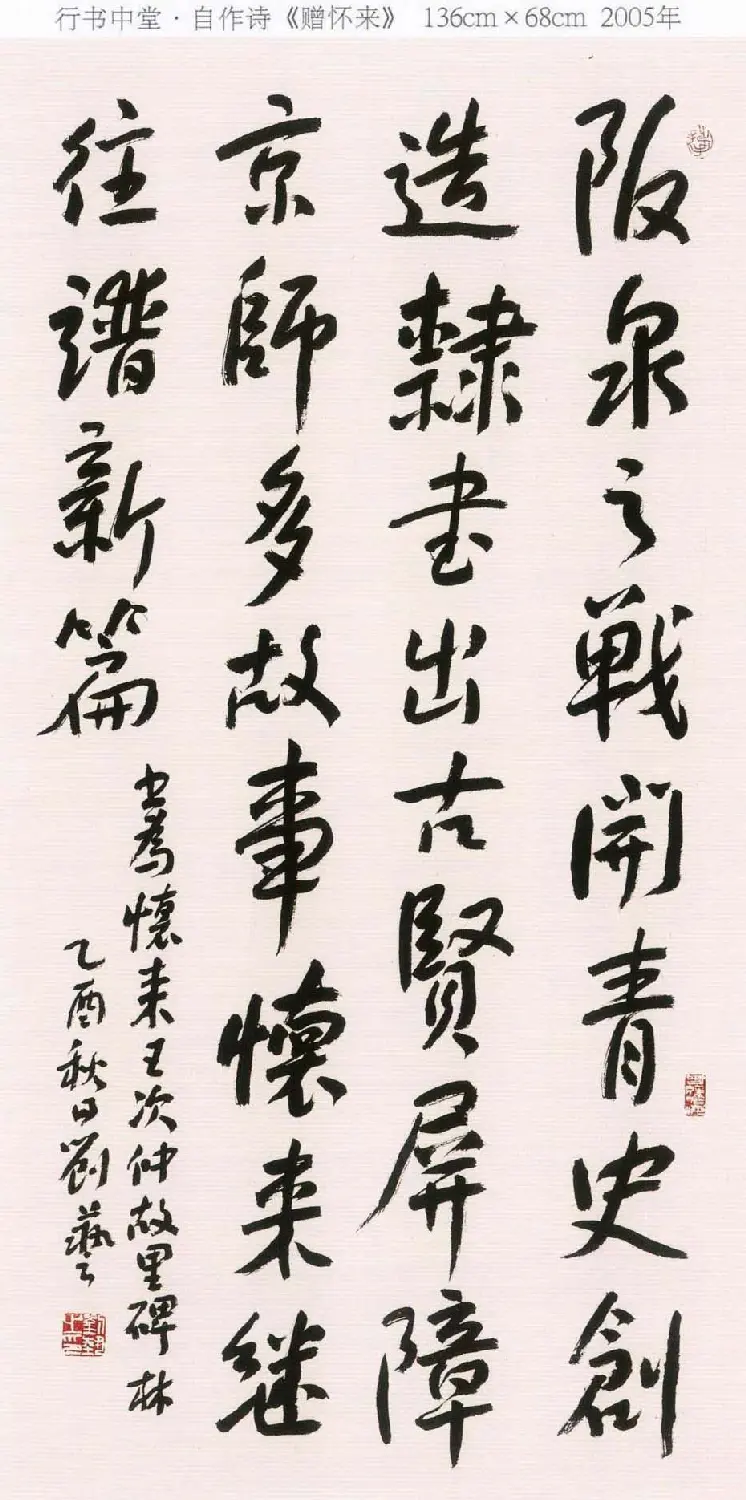 行书中堂·自作诗《赠怀来》 136cm×68cm 2005年
阪泉之戰開青史創
造隸书出古賢屏障
京師多故事懷来继
往譜新篇
书為懷来王次仲故里碑林
乙酉秋日劉藝